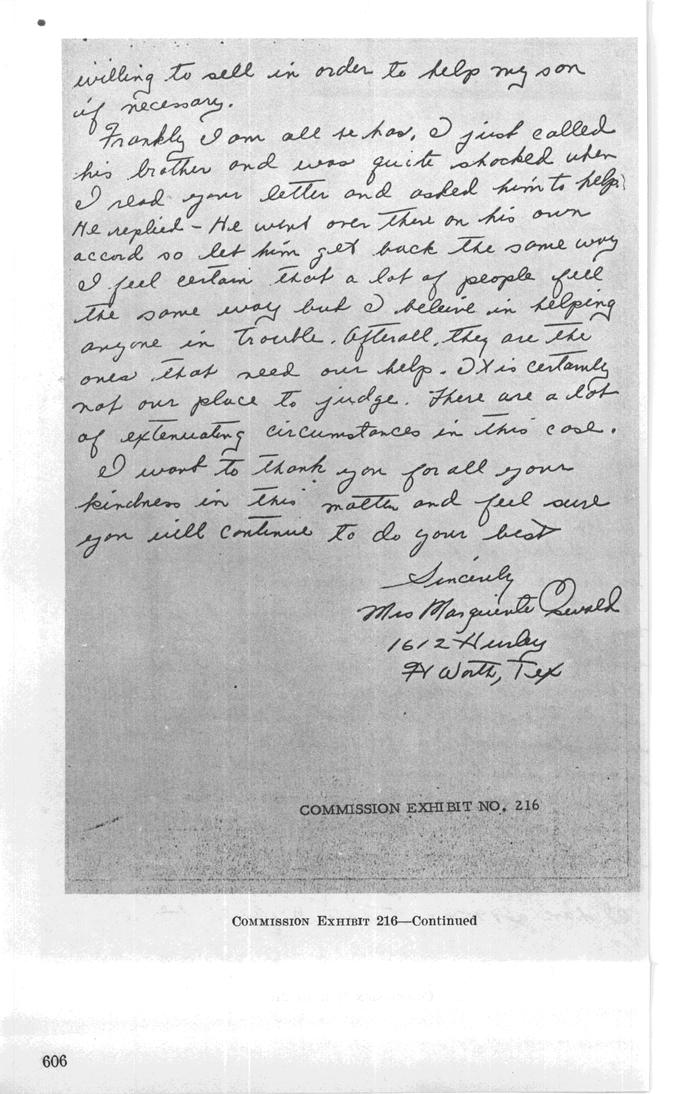 willing to sell in order to help my son
if necessary.
Frankly I am all he has, I just called
his brother and was quite shocked when
I read your letter and asked him to help.
He replied - He went over there on his own
accord so let him get back the same way
I feel certain that a lot of people feel
the same way but I beleive in helping
anyone in trouble. Afterall, they are the
ones that need our help. It is certainly
not our place to judge. There are a lot
of extenuating circumstances in this case.
I want to thank you for all your
kindness in this matter and feel sure
you will continue to do your best
Sincerely
Mrs Marguerite Oswald
1612 Hurley
Ft Worth, Tex
COMMISSION EXHIBIT NO. 216
COMMISSION EXHIBIT 216—Continued
606